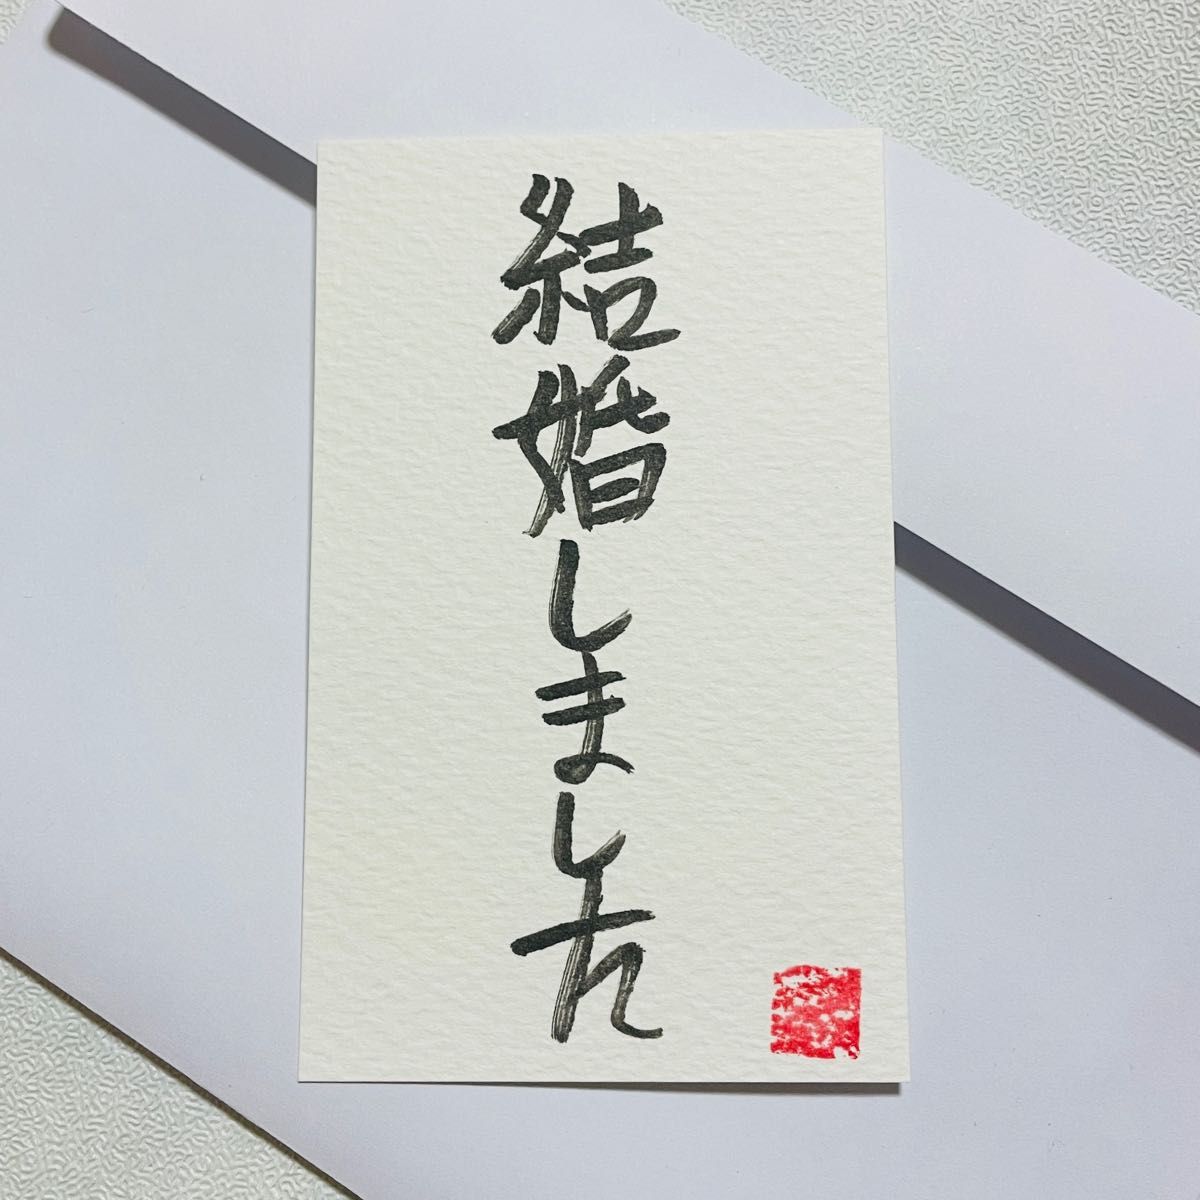 結婚しました